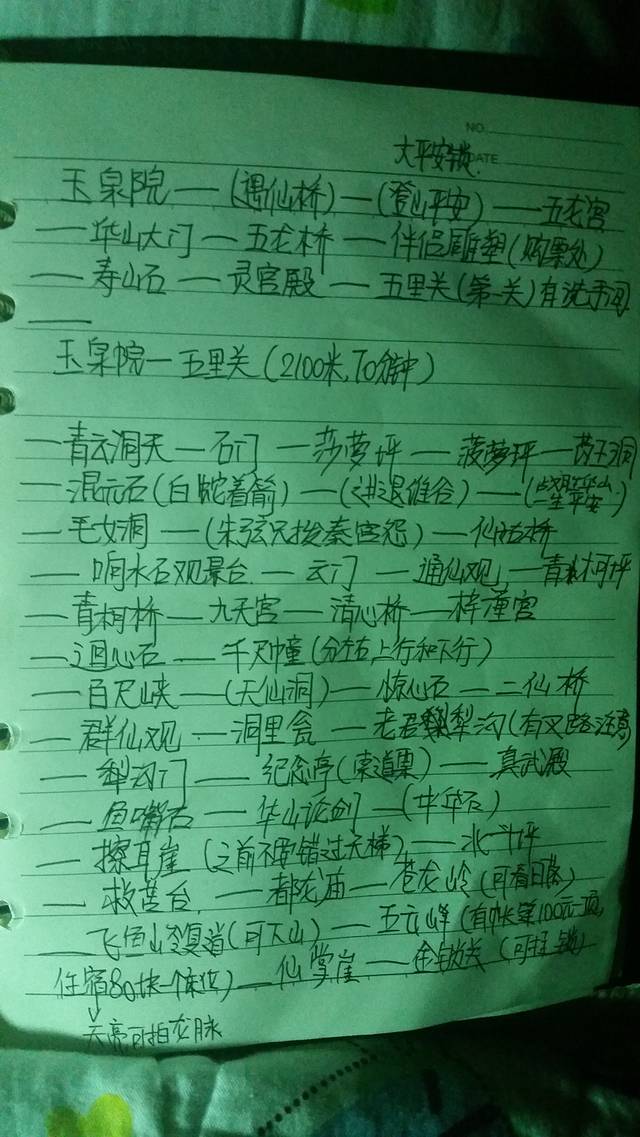 NO.
大平安锁 DATE
玉泉院—(遇仙桥)—(登山平安)—五龙宫
—华山大门—五龙桥—伴侣雕塑(购票处)
—寿山石—灵官殿—五里关(第一关)有洗手间
—
玉泉院—五里关(2100米,70分钟)
—青云洞天—石门—莎萝坪—菠萝坪—芮王洞
—混元石(白蛇着箭)—(进退维谷)—
—毛女洞—(朱弦只拨秦宫怨)—仙姑桥
—响水石观景台—云门—通仙观—青柯坪
—青柯桥—九天宫—清心桥—梓潼宫
—迴心石—千尺幢(分左右上行和下行)
—百尺峡—(天仙洞)—惊心石—二仙桥
—群仙观—洞里瓮—老君犁沟(有叉路注意)
—犁沟门—纪念亭(索道票)—真武殿
—鱼嘴石—华山论剑—(中华石)
—擦耳崖(之前不要错过天梯)—水斗坪
—救苦台—都龙庙—苍龙岭(可看日落)
—飞鱼岭复道(可下山)—五云峰(有帐篷100元一顶,
住宿80块一个床位)—仙掌崖—金锁关(可挂锁)
↓
天亮可拍龙脉